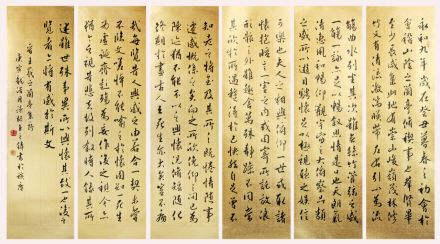 永和九年歲在癸丑暮春之初會於
會稽山陰之蘭亭修禊事也群賢畢
至少長咸集此地有崇山峻嶺茂林修
竹又有清流激湍映帶左右引以為流
觴曲水列坐其次雖無絲竹管弦之盛一
觴一詠亦足以暢敘幽情是日也天朗氣
清惠風和暢仰觀宇宙之大俯察品類
之盛所以遊目騁懷足以極視聽之娛信
可樂也夫人之相與俯仰一世或取諸
懷抱晤言一室之內或因寄所託放浪
形骸之外雖趣舍萬殊靜躁不同當
其欣於所遇暫得於己快然自足曾不
知老之將至及其所之既惓情隨事
遷感慨係之矣向之所欣俯仰之間已為
陳迹猶不能不以之興懷況脩短隨化
終期於盡古人云死生亦大矣豈不痛
哉每覽昔人興感之由若合一契未嘗
不臨文嗟悼不能喻之於懷固知一死生
為虛誕齊彭殤為妄作後之視今亦由今
之視昔悲夫故列敘時人錄其所
述雖世殊事異所以興懷其致一也後之
覽者亦將有感於斯文
王羲之蘭亭集序